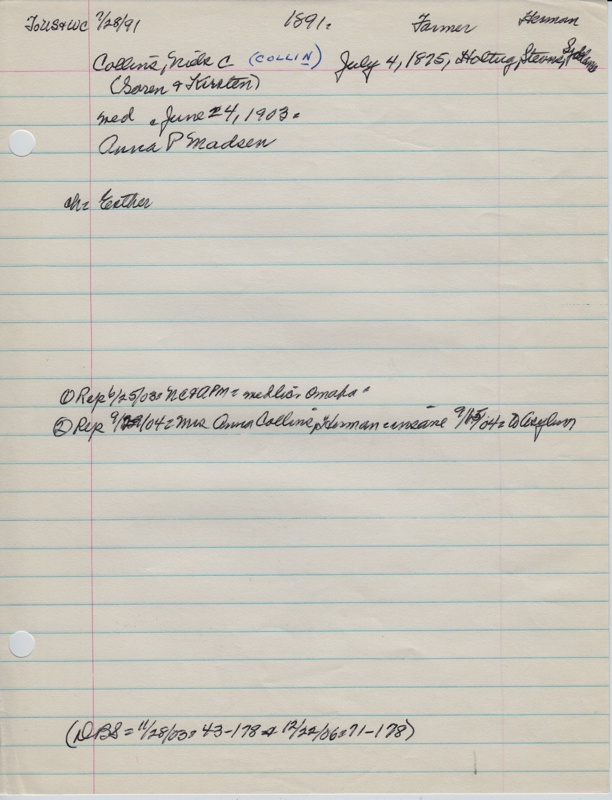 To US & WC 2/28/91 1891= Farmer Herman
Collins, Niels C (COLLIN) July 4, 1875, Holtug, Stevns,
(Soren & Kirsten)
med = June 24, 1903 =
Anna P Madsen
ch = Esther
① Rep 6/25/03 = NC & APM = med lic = Omaha =
② Rep 9/ /04 = Mrs Anna Collins, Herman = insane 9/15/04 = To Asylum
(DBS = 11/28/03 = 43-178 & 12/22/06 = 71-178)